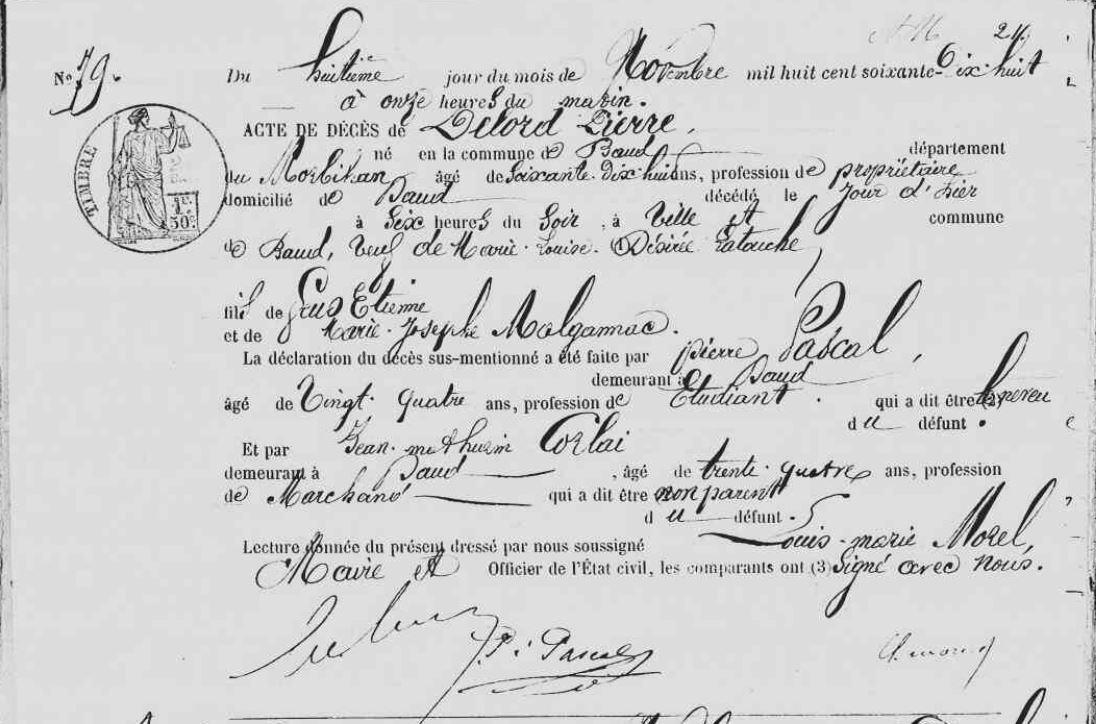 24
Nº 79.
Du huitième jour du mois de Novembre mil huit cent soixante-Dix-huit
à onze heures du matin.
ACTE DE DÉCÈS de Delord Pierre,
né en la commune de Baud département
du Morbihan âgé de soixante-dix-huit ans, profession de propriétaire
domicilié de Baud décédé le Jour d'hier
à Six heures du Soir, à Ville et commune
de Baud, Veuf de Marie-Louise-Désirée Latouche,
fils de feus Etienne
et de Marie-Josephe Malgamac.
La déclaration du décès sus-mentionné a été faite par pierre Pascal,
demeurant à Baud
âgé de Vingt-quatre ans, profession de Etudiant. qui a dit être (2) neveu
du défunt.
Et par Jean-mathurin Corlai
demeurant à Baud, âgé de trente-quatre ans, profession
de Marchand qui a dit être non parent
du défunt.
Lecture donnée du présent dressé par nous soussigné Louis-marie Morel,
Maire et Officier de l'État civil, les comparants ont (3) Signé avec Nous.
P. Pascal
TIMBRE
50c.